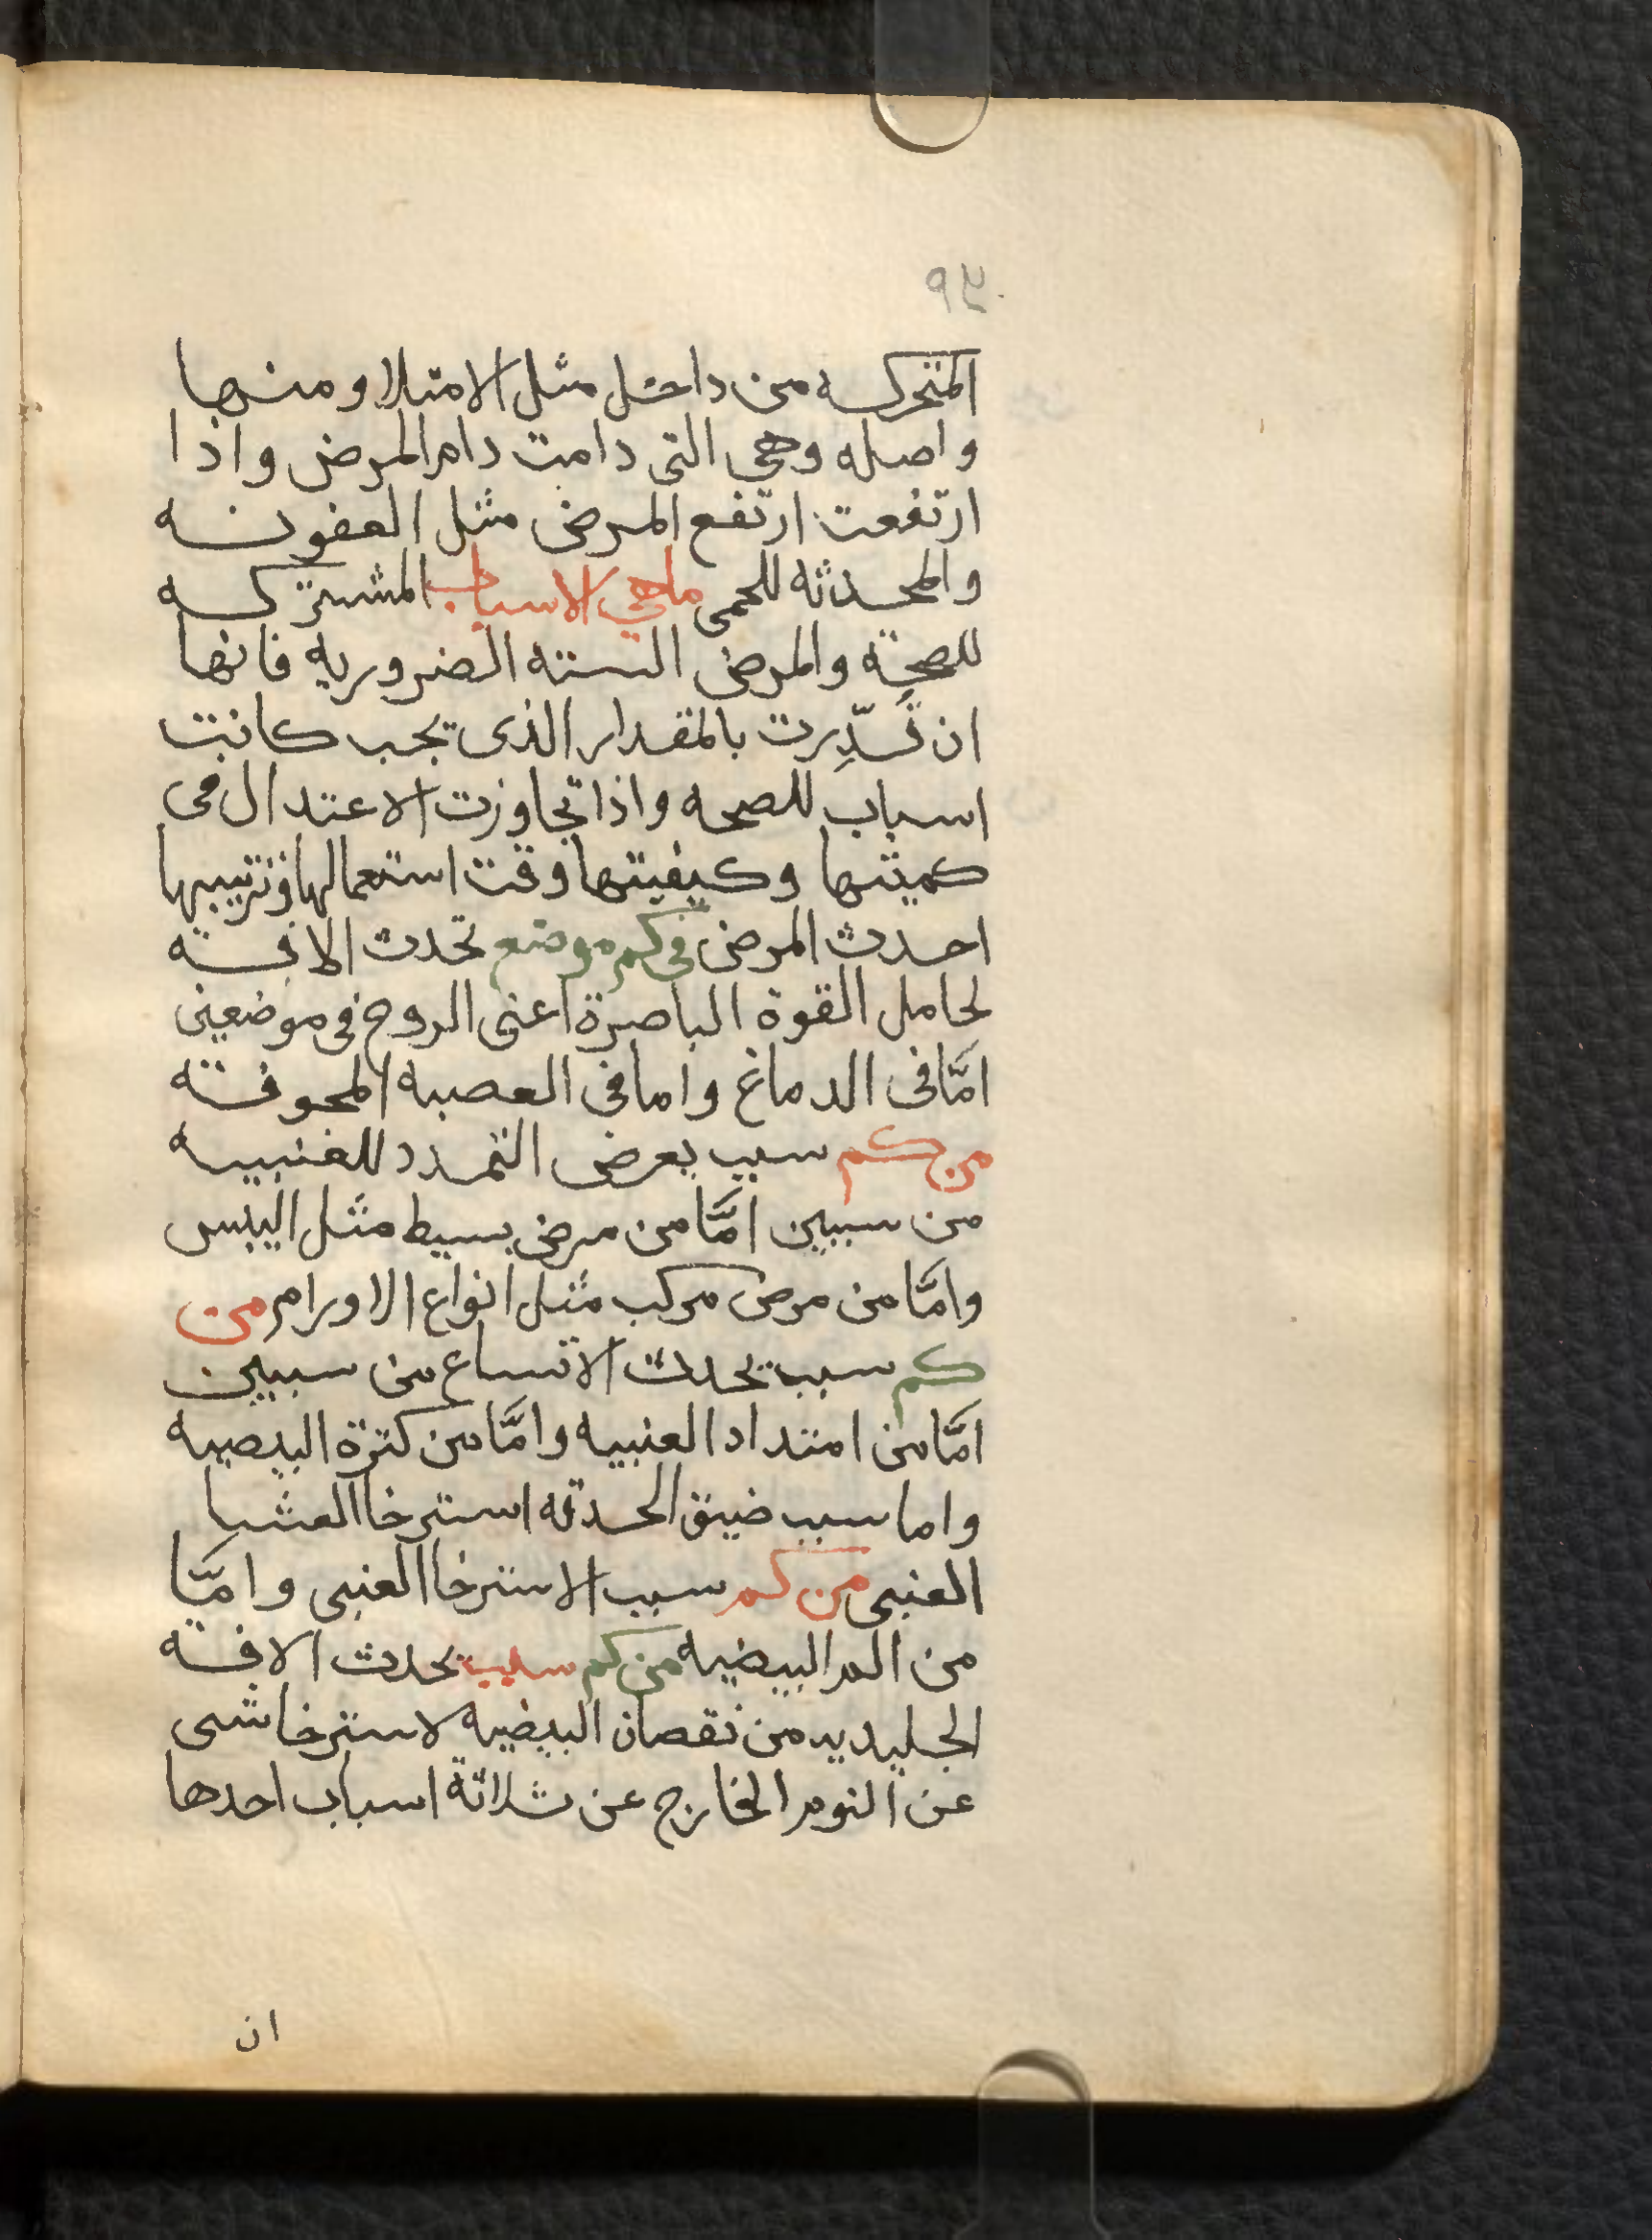 المتحركه من داخل مثل الامتلا ومنها
واصله وهي التى دامت دام المرض واذا
ارتفعت ارتفع المرض مثل العفونه
والمحدثه للحمى ماهي الاسباب المشتركه
للصحة والمرض الستة الضروريه فانها
ان قُدِّرت بالمقدار الذى يجب كانت
اسباب للصحه واذا تجاوزت الاعتدال فى
كميتها وكيفيتها وقت استعمالها وترتيبها
احدث المرض فى كم موضع تحدث الافه
لحامل القوة الباصرة اعنى الروح فى موضعين
امَّا فى الدماغ واما فى العصبه المجوفه
من كم سبب يعرض التمدد للعنبيه
من سببين امَّا من مرض بسيط مثل اليبس
وامَّا من مرض مركب مثل انواع الاورام من
كم سبب يحدث الاتساع من سببين
امَّا من امتداد العنبيه وامَّا من كثرة البيضيه
واما سبب ضيق الحدقه استرخا الغشا
العنبى من كم سبب الاسترخا العنبى وامَّا
من البيضيه من كم سبب يحدث الافه
الجليديه من نقصان البيضيه لاسترخا شى
عن النوم الخارج عن ثلاثة اسباب احدها
ان